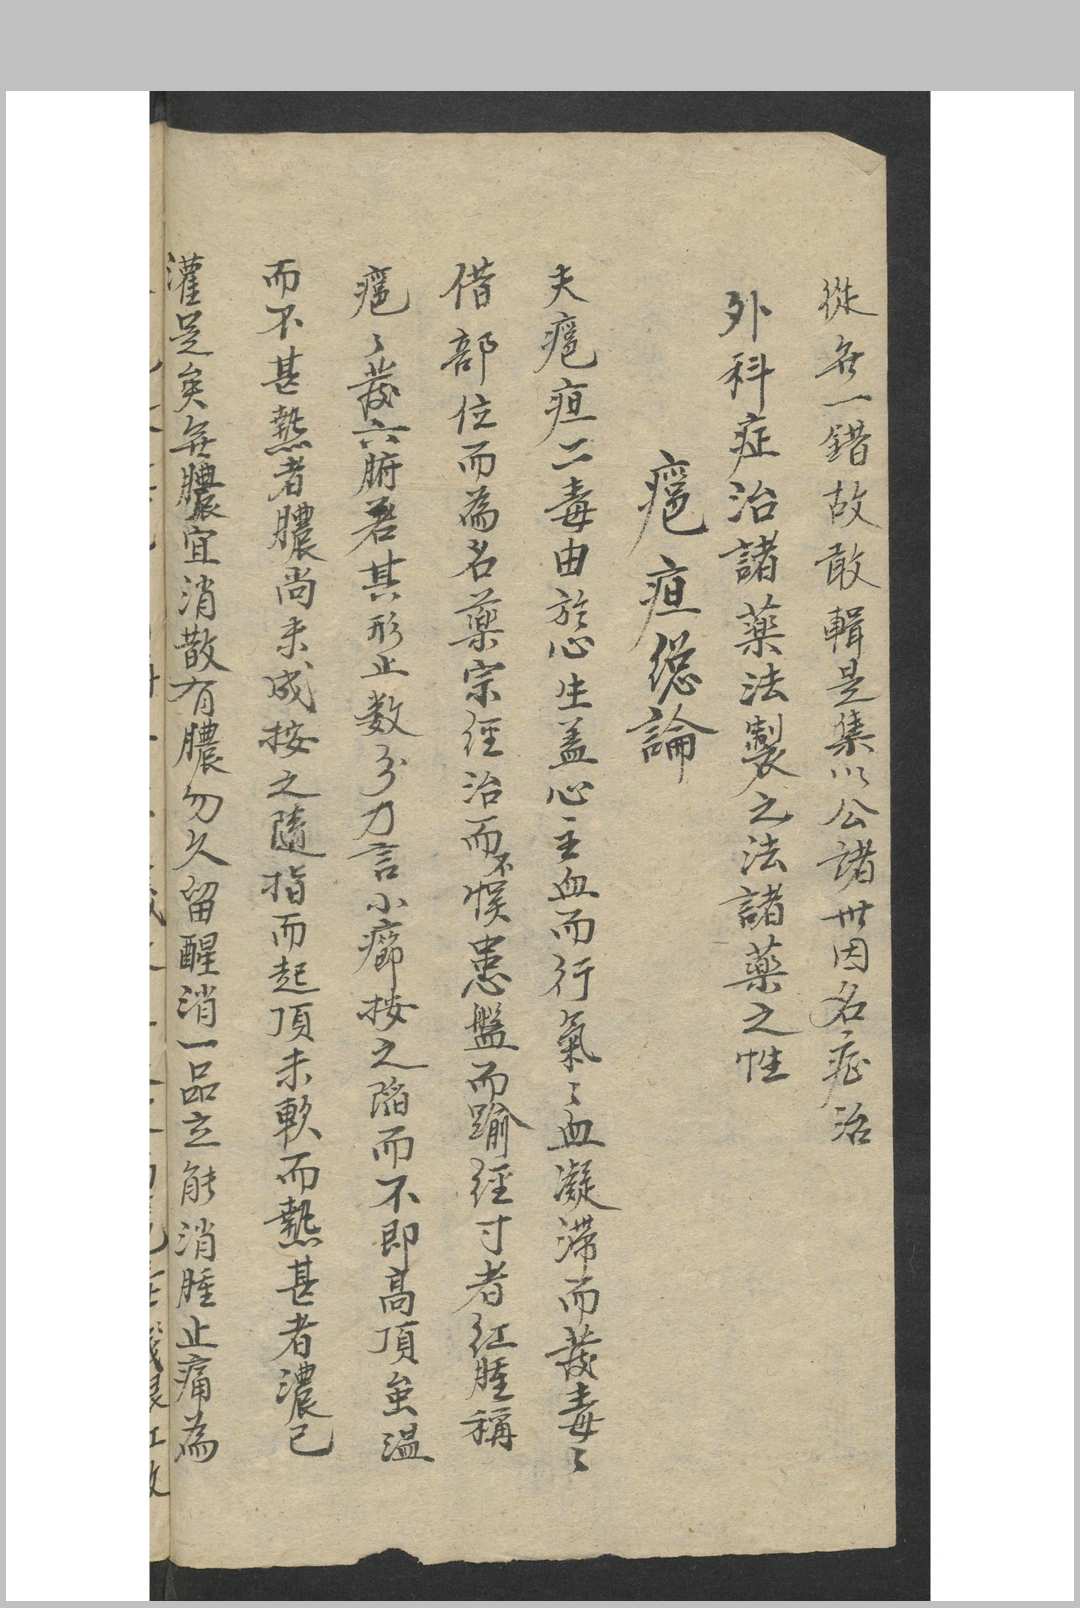 從無一錯故敢輯是集以公諸世因名症治
外科症治諸藥法製之法諸藥之性
癰疽總論
夫癰疽二毒由於心生盖心主血而行氣〻血凝滞而發毒〻
借部位而為名藥宗經治而不悞患盤而踰經寸者红腫稱
癰〻發六腑若其形止数分乃言小癤按之陷而不即高頂虽温
而不甚熱者膿尚未成按之隨指而起頂未軟而熱甚者濃已
灌足矣無膿宜消散有膿勿久留醒消一品立能消腫止痛為